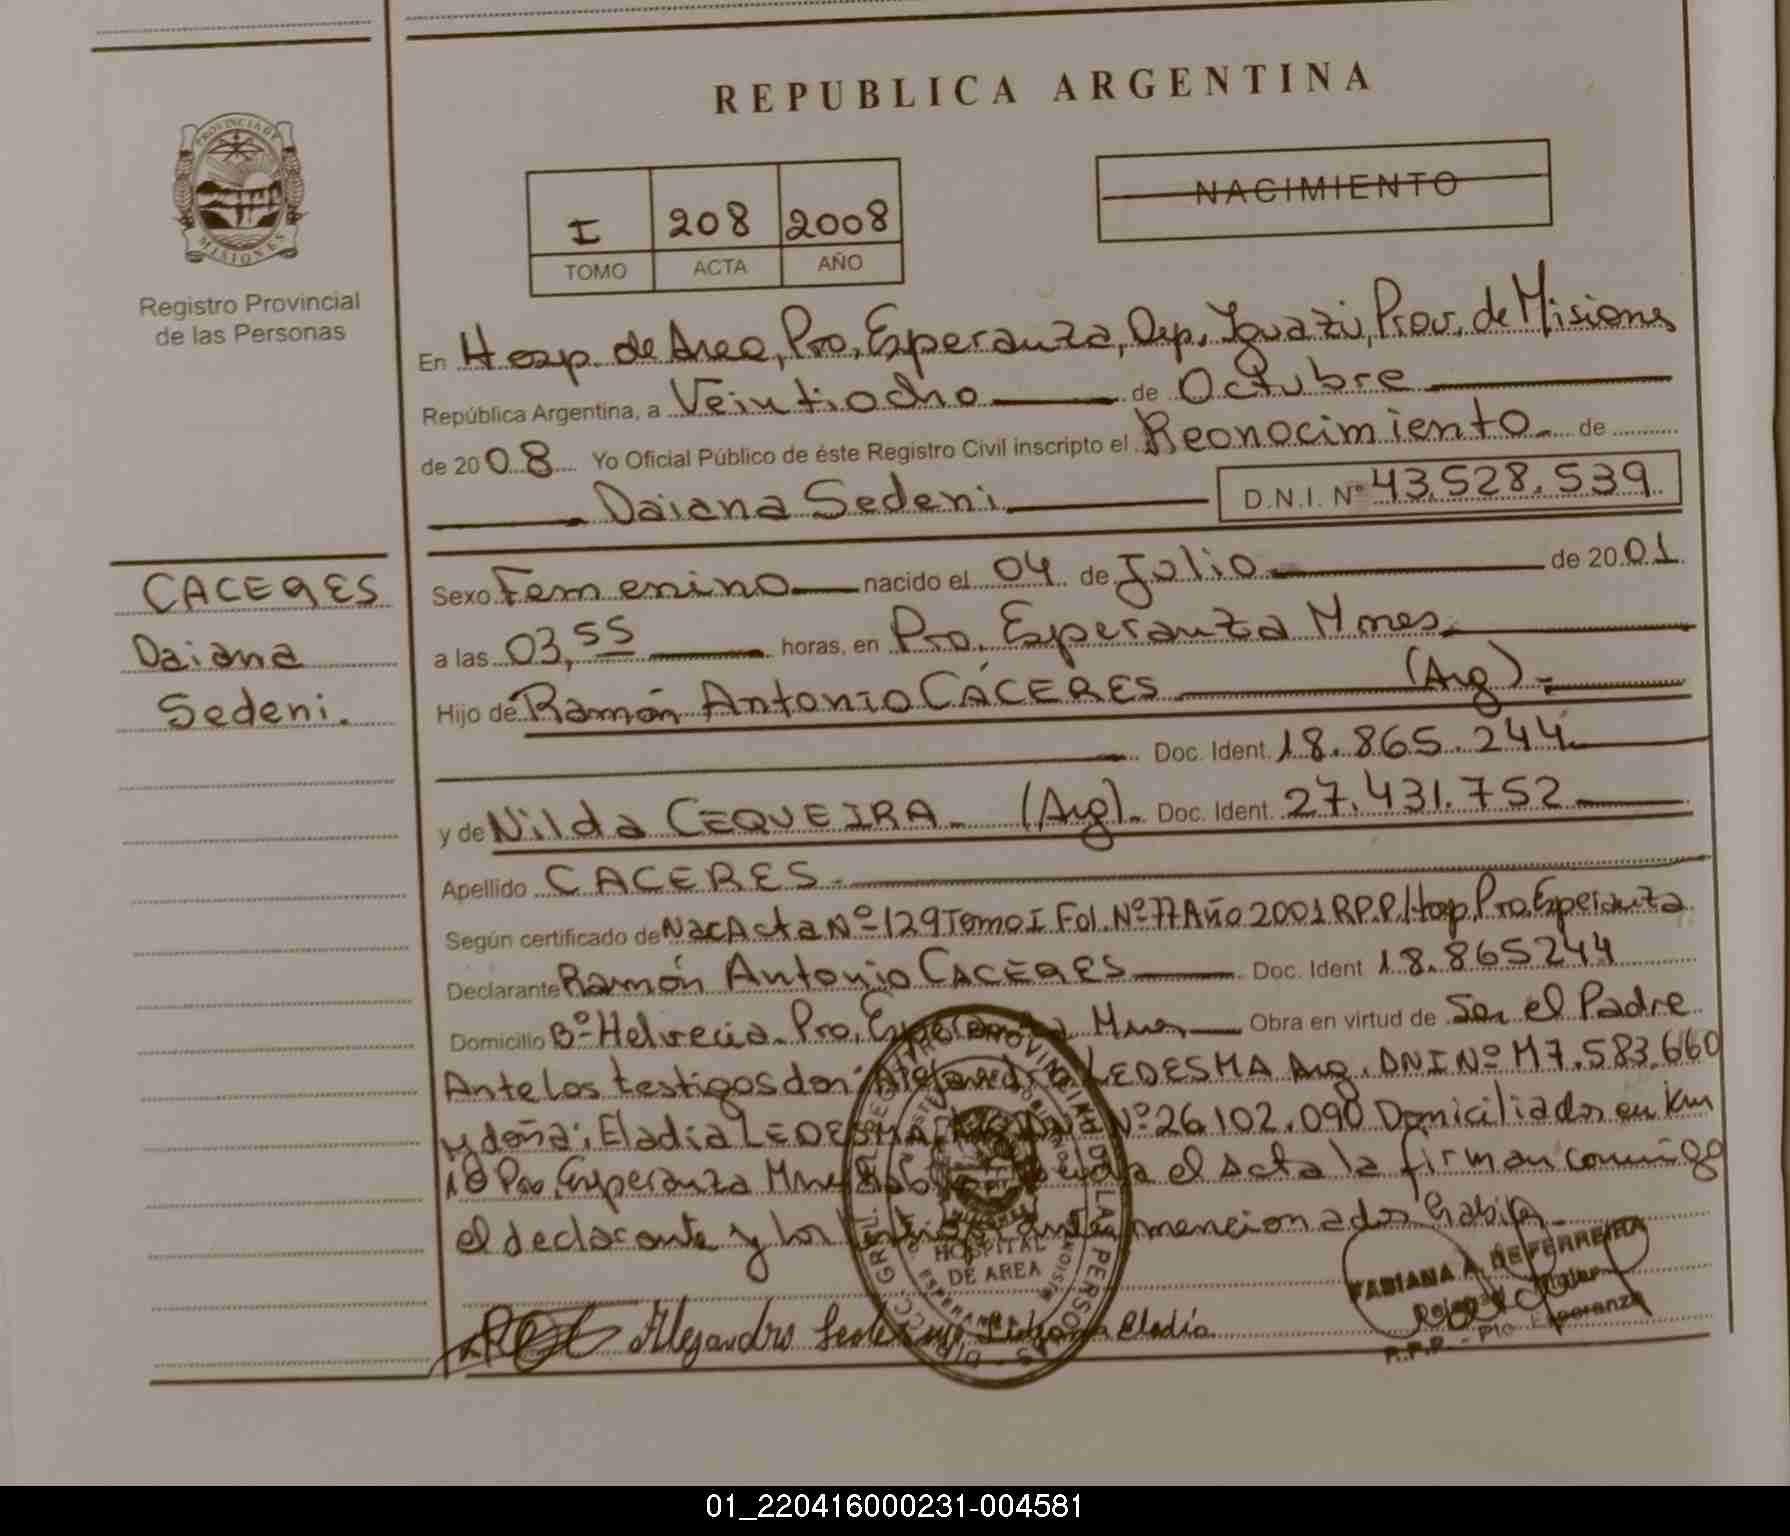 REPUBLICA ARGENTINA
PROVINCIA DE
MISIONES
Registro Provincial
de las Personas
I 208 2008
TOMO ACTA AÑO
NACIMIENTO
En Hosp. de Area, Pto. Esperanza, Dep. Iguazú, Prov. de Misiones
República Argentina, a Veintiocho de Octubre
de 2008 Yo Oficial Público de éste Registro Civil inscripto el Reonocimiento de
Daiana Sedeni D.N.I. Nº 43.528.539
CACERES
Daiana
Sedeni.
Sexo Femenino nacido el 04 de Julio de 2001
a las 03,55 horas, en Pto. Esperanza Mnes
Hijo de Ramón Antonio CÁCERES (Arg).-
Doc. Ident. 18.865.244
y de Nilda CEQUEIRA (Arg). Doc. Ident. 27.431.752
Apellido CACERES
Según certificado de Nac Acta Nº 129 Tomo I Fol. Nº 77 Año 2001 R.P.P. Hosp. Pto. Esperanza
Declarante Ramón Antonio CACERES Doc. Ident 18.865244
Domicilio Bº Helvecia. Pto. Esperanza Mnes Obra en virtud de Ser el Padre
Ante los testigos don: Alejandro LEDESMA Arg. DNI Nº M7.583.660
y doña: Eladia LEDESMA Nº 26.102.090 Domiciliados en Km
18 Pto. Esperanza Mnes el acta la firman conmigo
el declarante y los testigos antes mencionados
HOSPITAL
DE AREA
FABIANA A. DE FERREIRA
Delegada Titular
R.P.P. - Pto Esperanza
Alejandro Eladia
01_220416000231-004581